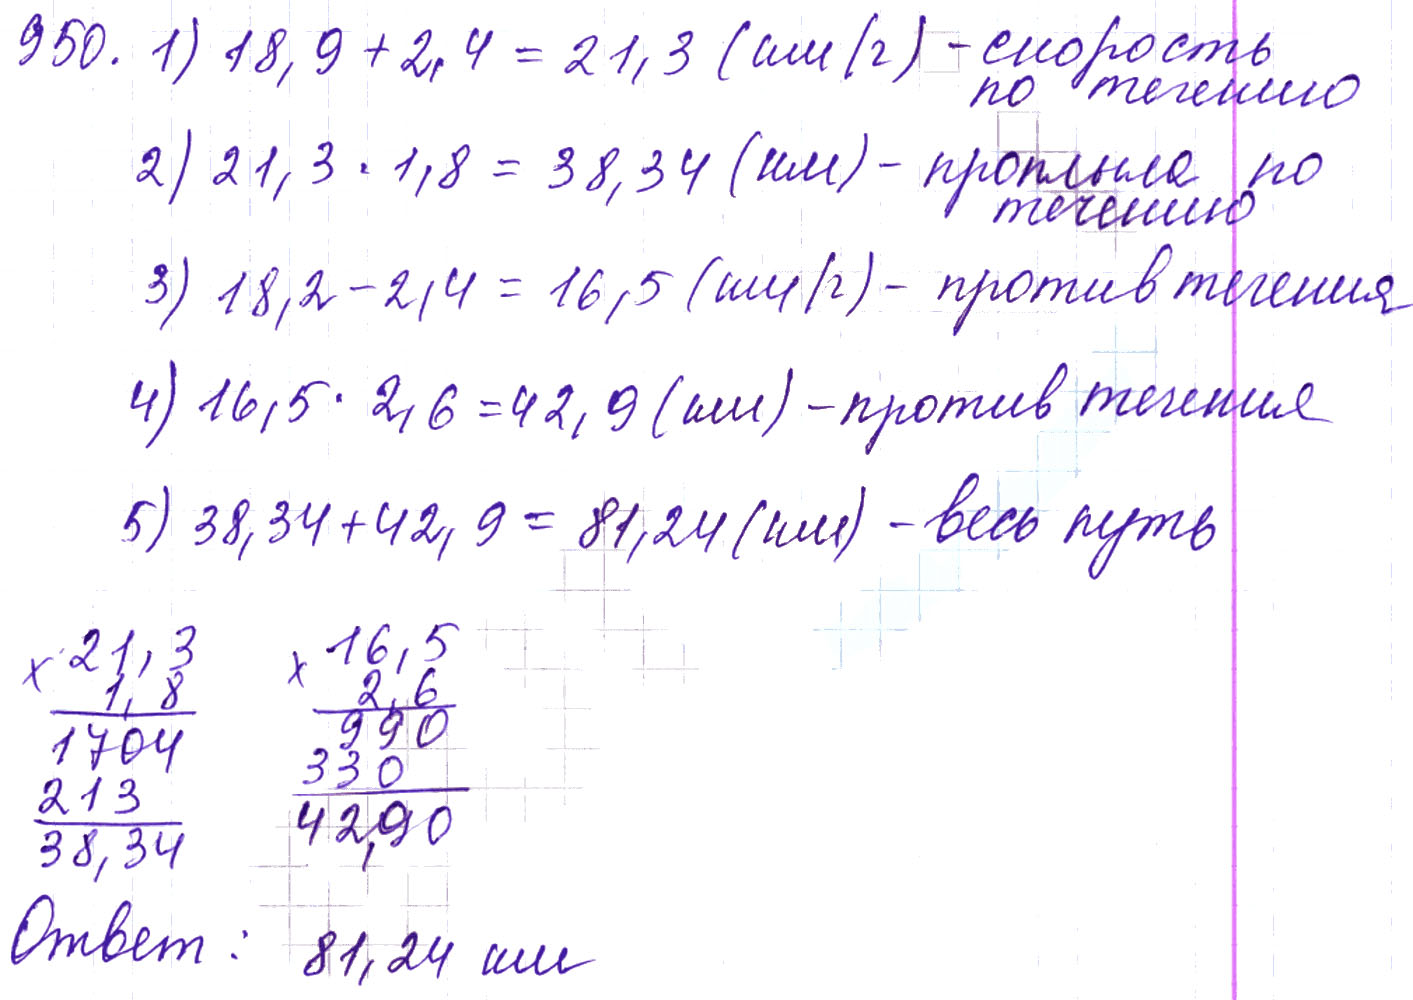 950. 1) 18,9 + 2,4 = 21,3 (км/ч) - скорость
по течению
2) 21,3 · 1,8 = 38,34 (км) - проплыла по
течению
3) 18,2 - 2,4 = 16,5 (км/ч) - против течения
4) 16,5 · 2,6 = 42,9 (км) - против течения
5) 38,34 + 42,9 = 81,24 (км) - весь путь
x 21,3 x 16,5
1,8 2,6
1704 990
213 330
38,34 42,90
Ответ: 81,24 км